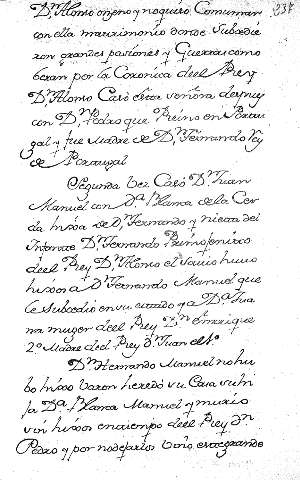 237
Dn Alonso onzeno y no quiso Consumar
con ella matrimonio donde Subcedie
ron grandes pasiones y Guerras como
beran por la Coronica deel Rey
Dn Alonso Casò esta señora despues
con Dn Pedro que Reino en Portu
gal y fue Madre de Dn Fernando Rey
de Portugal
Segunda bez Casò Dn Juan
Manuel con Da Blanca de la Cer
da hixa de Dn Fernando y nieta del
Infante Dn Fernando Primogenito
deel Rey Dn Alonso el Savio huvo
hixos a Dn Fernando Manuel que
le Subcedio en su estado y a Da Jua
na muger deel Rey Dn Enrrique
2o Madre deel Rey Dn Juan el 1o
Dn Hernando Manuel no hu
bo hixo varon heredò su Casa su hi
ja Da Blanca Manuel y murio
sin hixos en tiempo deel Rey Dn
Pedro y por no dejarlos bino este grande